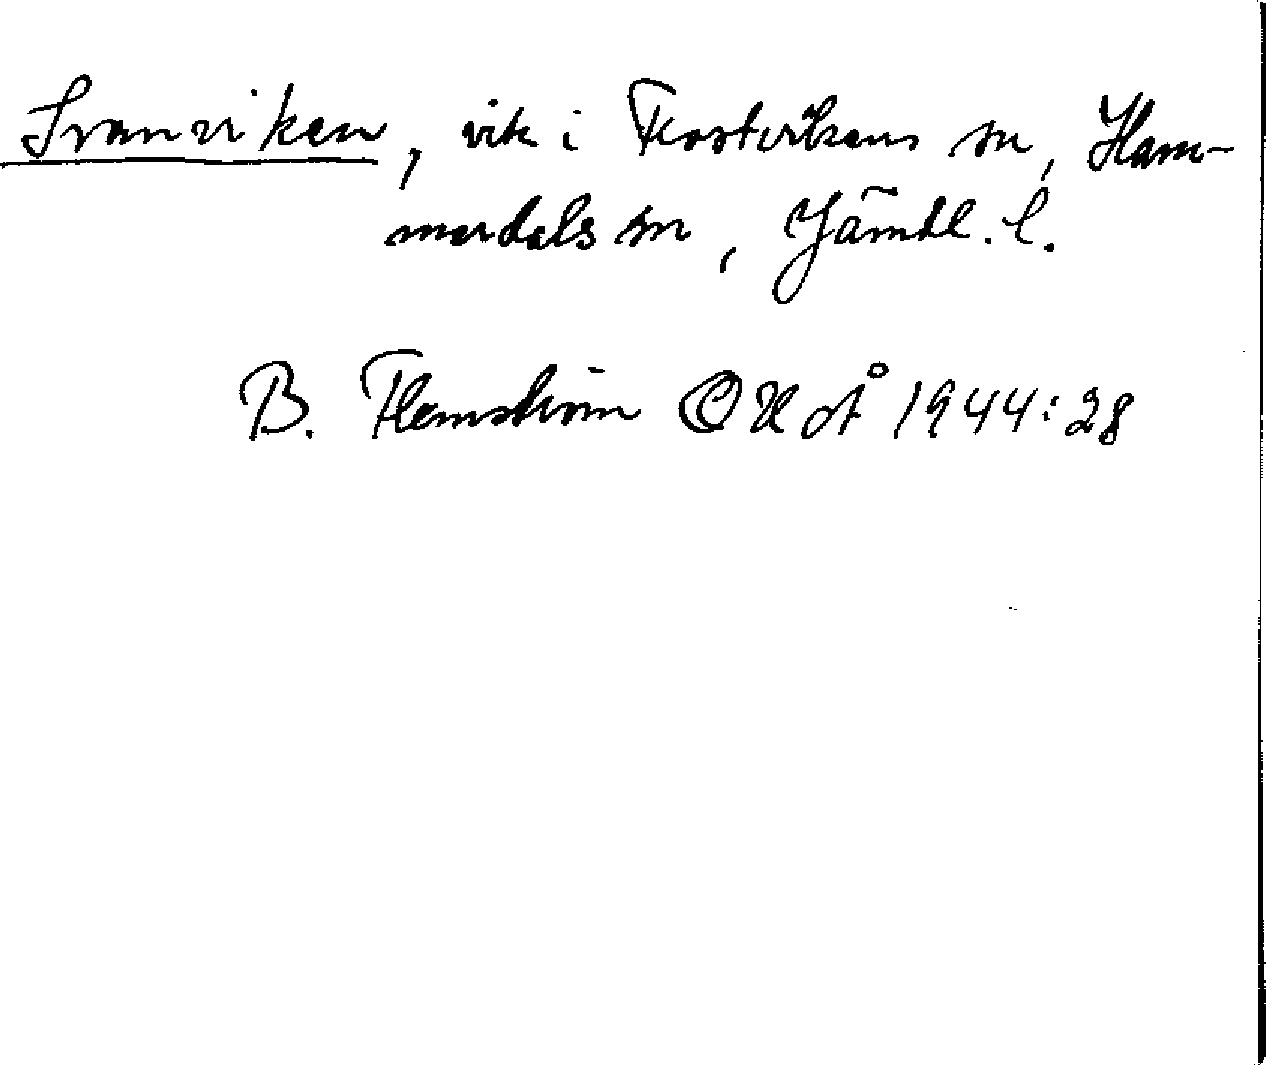 Svanviken, vik i Flostvikens sn, Ham-
merdals sn, Jämtl. l.
B. Flemström OUoÅ 1944:28